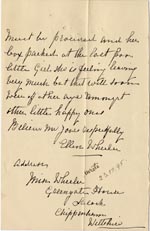 must be procured and her
box packed at the last poor
little Girl she is feeling leaving
very much but that will soon
when she is away amongst
other little happy ones
Believe me yours respectfully
Ellen Wheeler
Address
Miss Wheeler
House
Lacock
Chippenham
Wiltshire